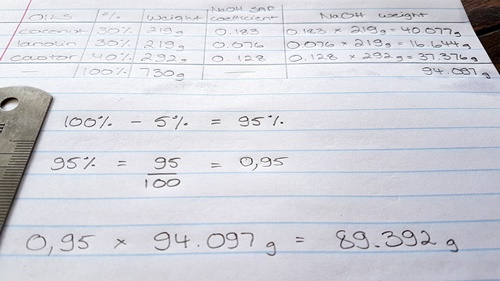 OILS % Weight NaOH SAP coefficient NaOH weight
coconut 30% 219g 0.183 0.183 × 219g = 40.077g
lanolin 30% 219g 0.076 0.076 × 219g = 16.644g
castor 40% 292g 0.128 0.128 × 292g = 37.376g
— 100% 730g — 94.097g
100% - 5% = 95%
95% = 95/100 = 0,95
0,95 × 94.097g = 89.392g